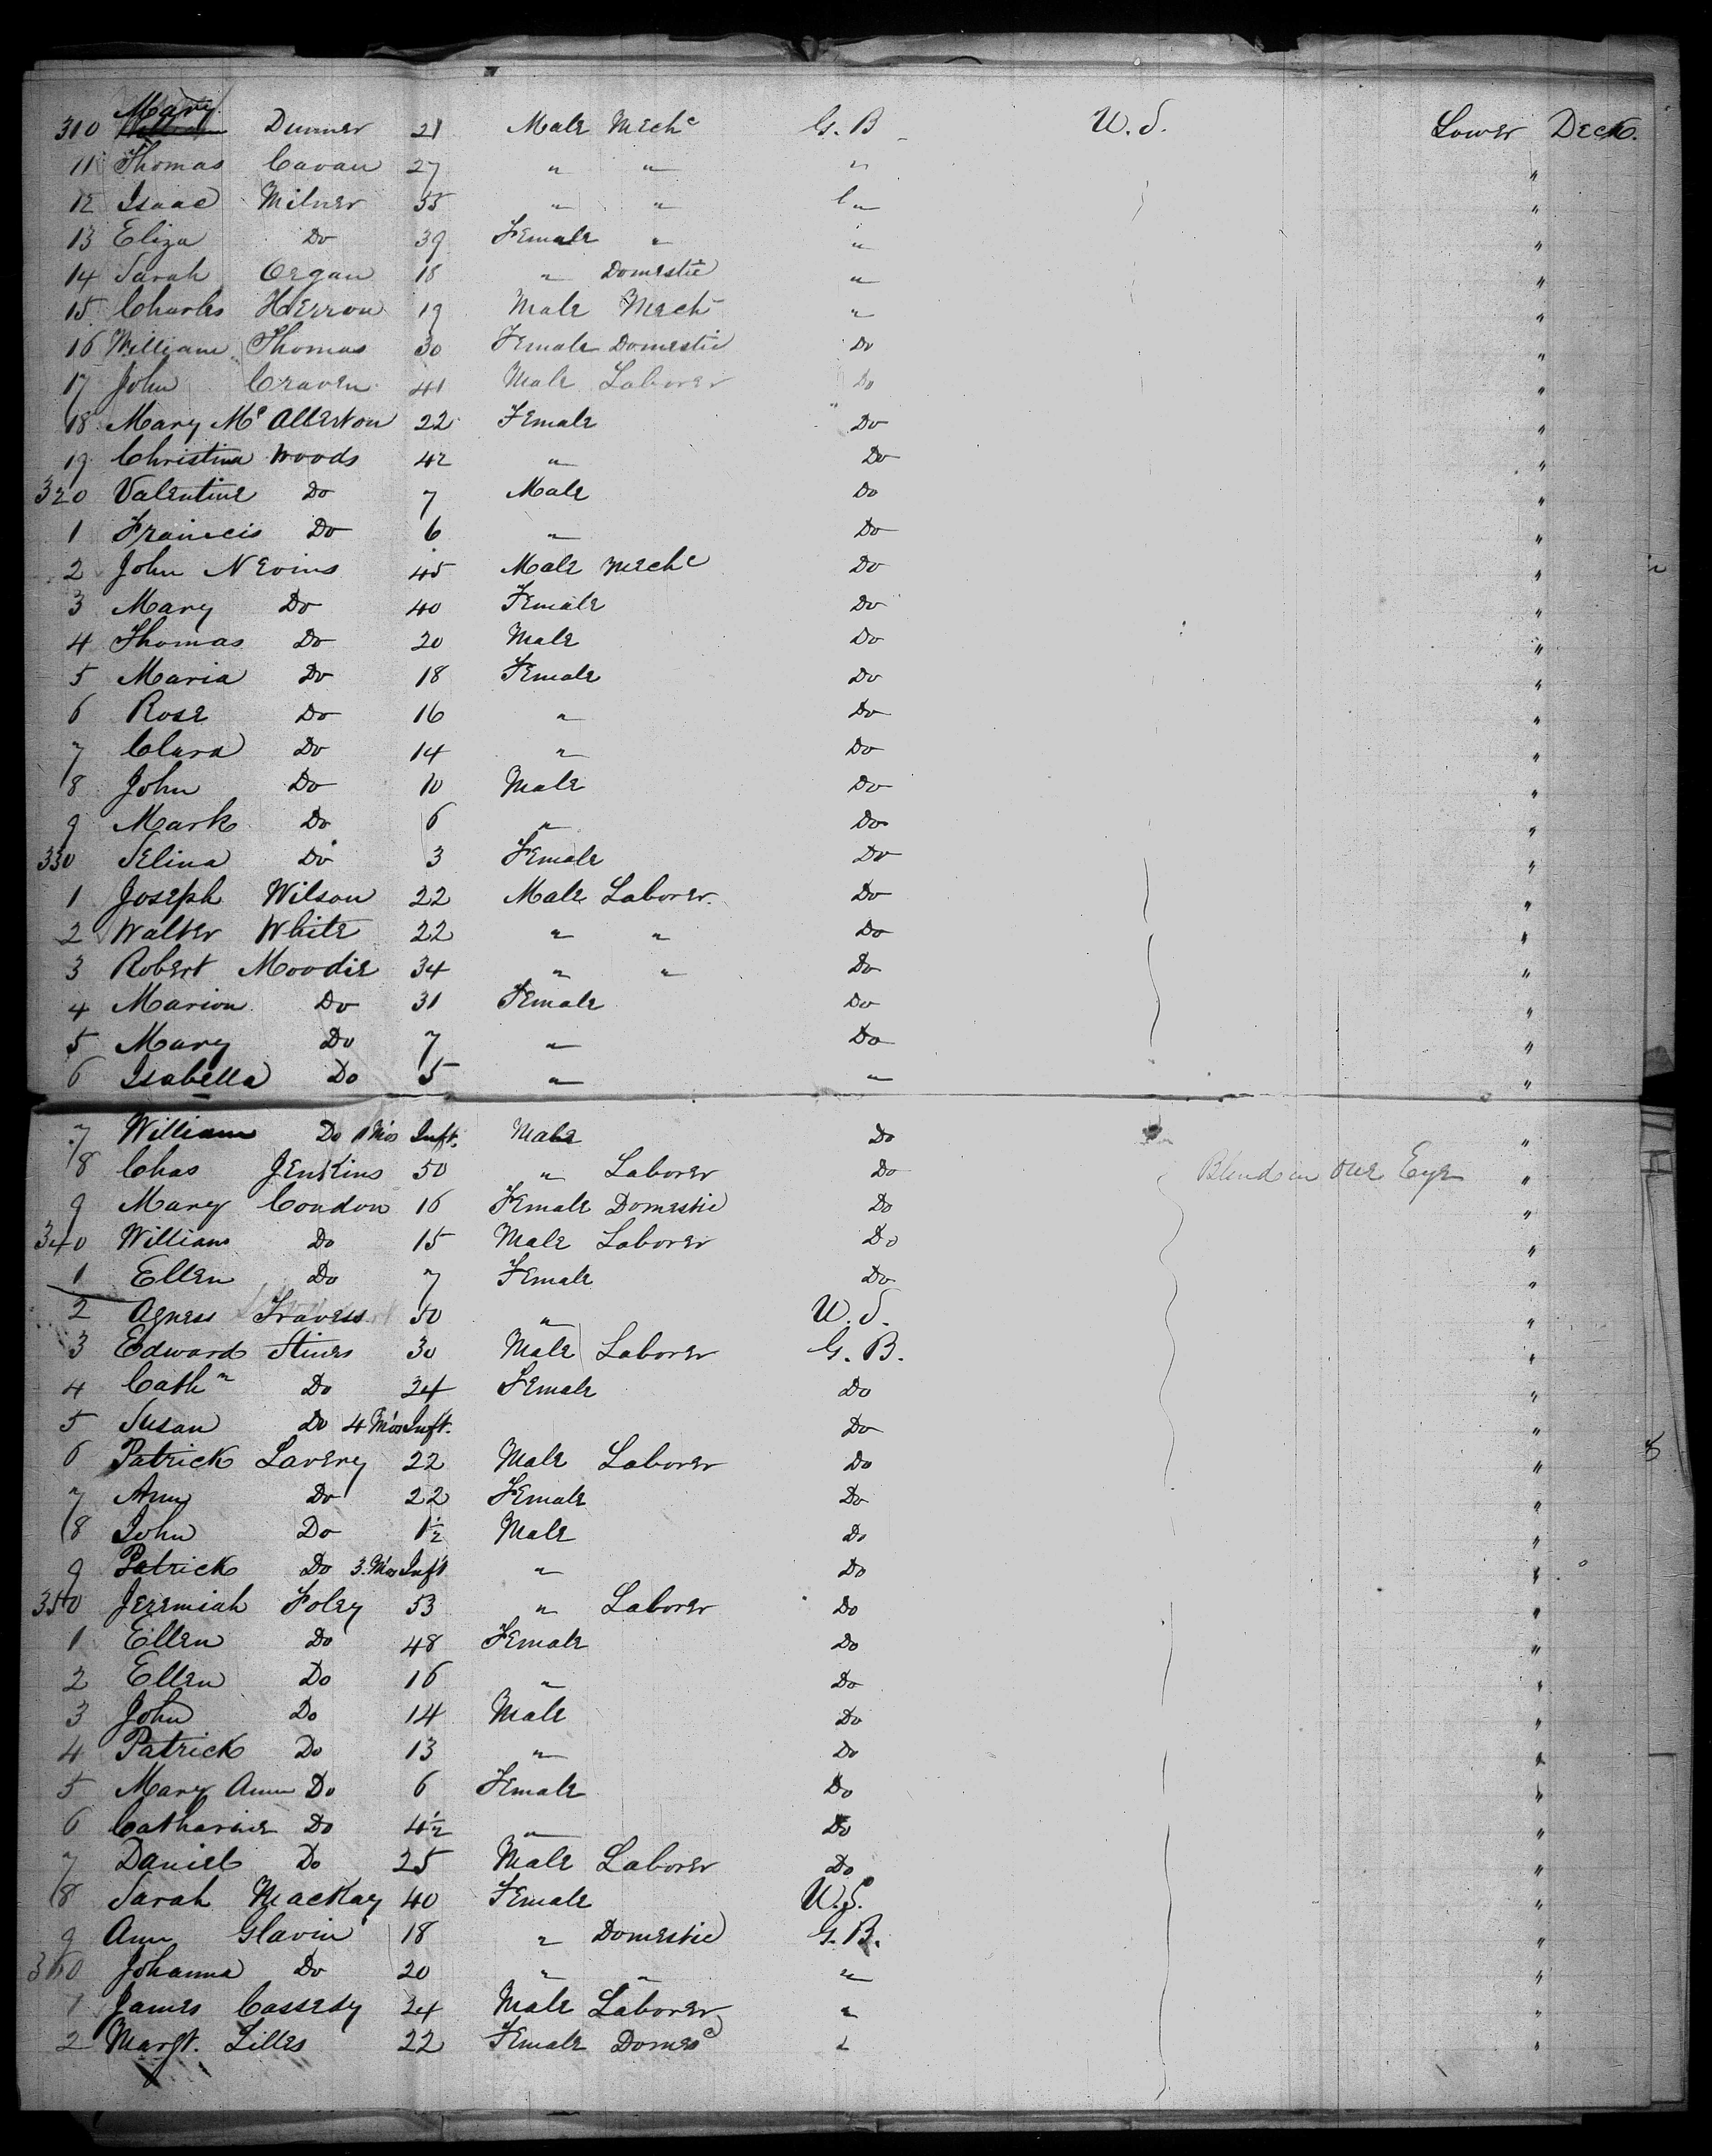 Mary
310 Dunner 21 Male Mechc G. B U. S. Lower Deck.
11 Thomas Cavan 27 " " " "
12 Isaac Milner 35 " " " "
13 Eliza Do 39 Female " " "
14 Sarah Organ 18 " Domestic " "
15 Charles Herron 19 Male Mechc " "
16 William Thomas 30 Female Domestic Do "
17 John Craven 41 Male Laborer Do "
18 Mary Mc Allerton 22 Female Do "
19 Christina Woods 42 " Do "
320 Valentine Do 7 Male Do "
1 Francis Do 6 " Do "
2 John Nevins 45 Male Mechc Do "
3 Mary Do 40 Female Do "
4 Thomas Do 20 Male Do "
5 Maria Do 18 Female Do "
6 Rose Do 16 " Do "
7 Clara Do 14 " Do "
8 John Do 10 Male Do "
9 Mark Do 6 " Do "
330 Selina Do 3 Female Do "
1 Joseph Wilson 22 Male Laborer. Do "
2 Walter White 22 " " Do "
3 Robert Moodie 34 " " Do "
4 Marion Do 31 Female Do "
5 Mary Do 7 " Do "
6 Isabella Do 5 " " "
7 William Do Mos Inft. Male Do "
8 Chas Jenkins 50 " Laborer Do Blind in One Eye "
9 Mary Condon 16 Female Domestic Do "
340 William Do 15 Male Laborer Do "
1 Ellen Do 7 Female Do "
2 Agness Travess 50 " U. S. "
3 Edward Stines 30 Male Laborer G. B. "
4 Cathn Do 24 Female Do "
5 Susan Do 4 Mos Inft. Do "
6 Patrick Lavery 22 Male Laborer Do "
7 Ann Do 22 Female Do "
8 John Do 1½ Male Do "
9 Patrick Do 3. Mos Inft " Do "
350 Jeremiah Foley 53 " Laborer Do "
1 Ellen Do 48 Female Do "
2 Ellen Do 16 " Do "
3 John Do 14 Male Do "
4 Patrick Do 13 " Do "
5 Mary Ann Do 6 Female Do "
6 Catharine Do 4½ " Do "
7 Daniel Do 25 Male Laborer Do "
8 Sarah MacKay 40 Female U. S. "
9 Ann Glavin 18 " Domestic G. B. "
360 Johanna Do 20 " " " "
1 James Cassedy 24 Male Laborer " "
2 Margt. Lilles 22 Female Domesc " "